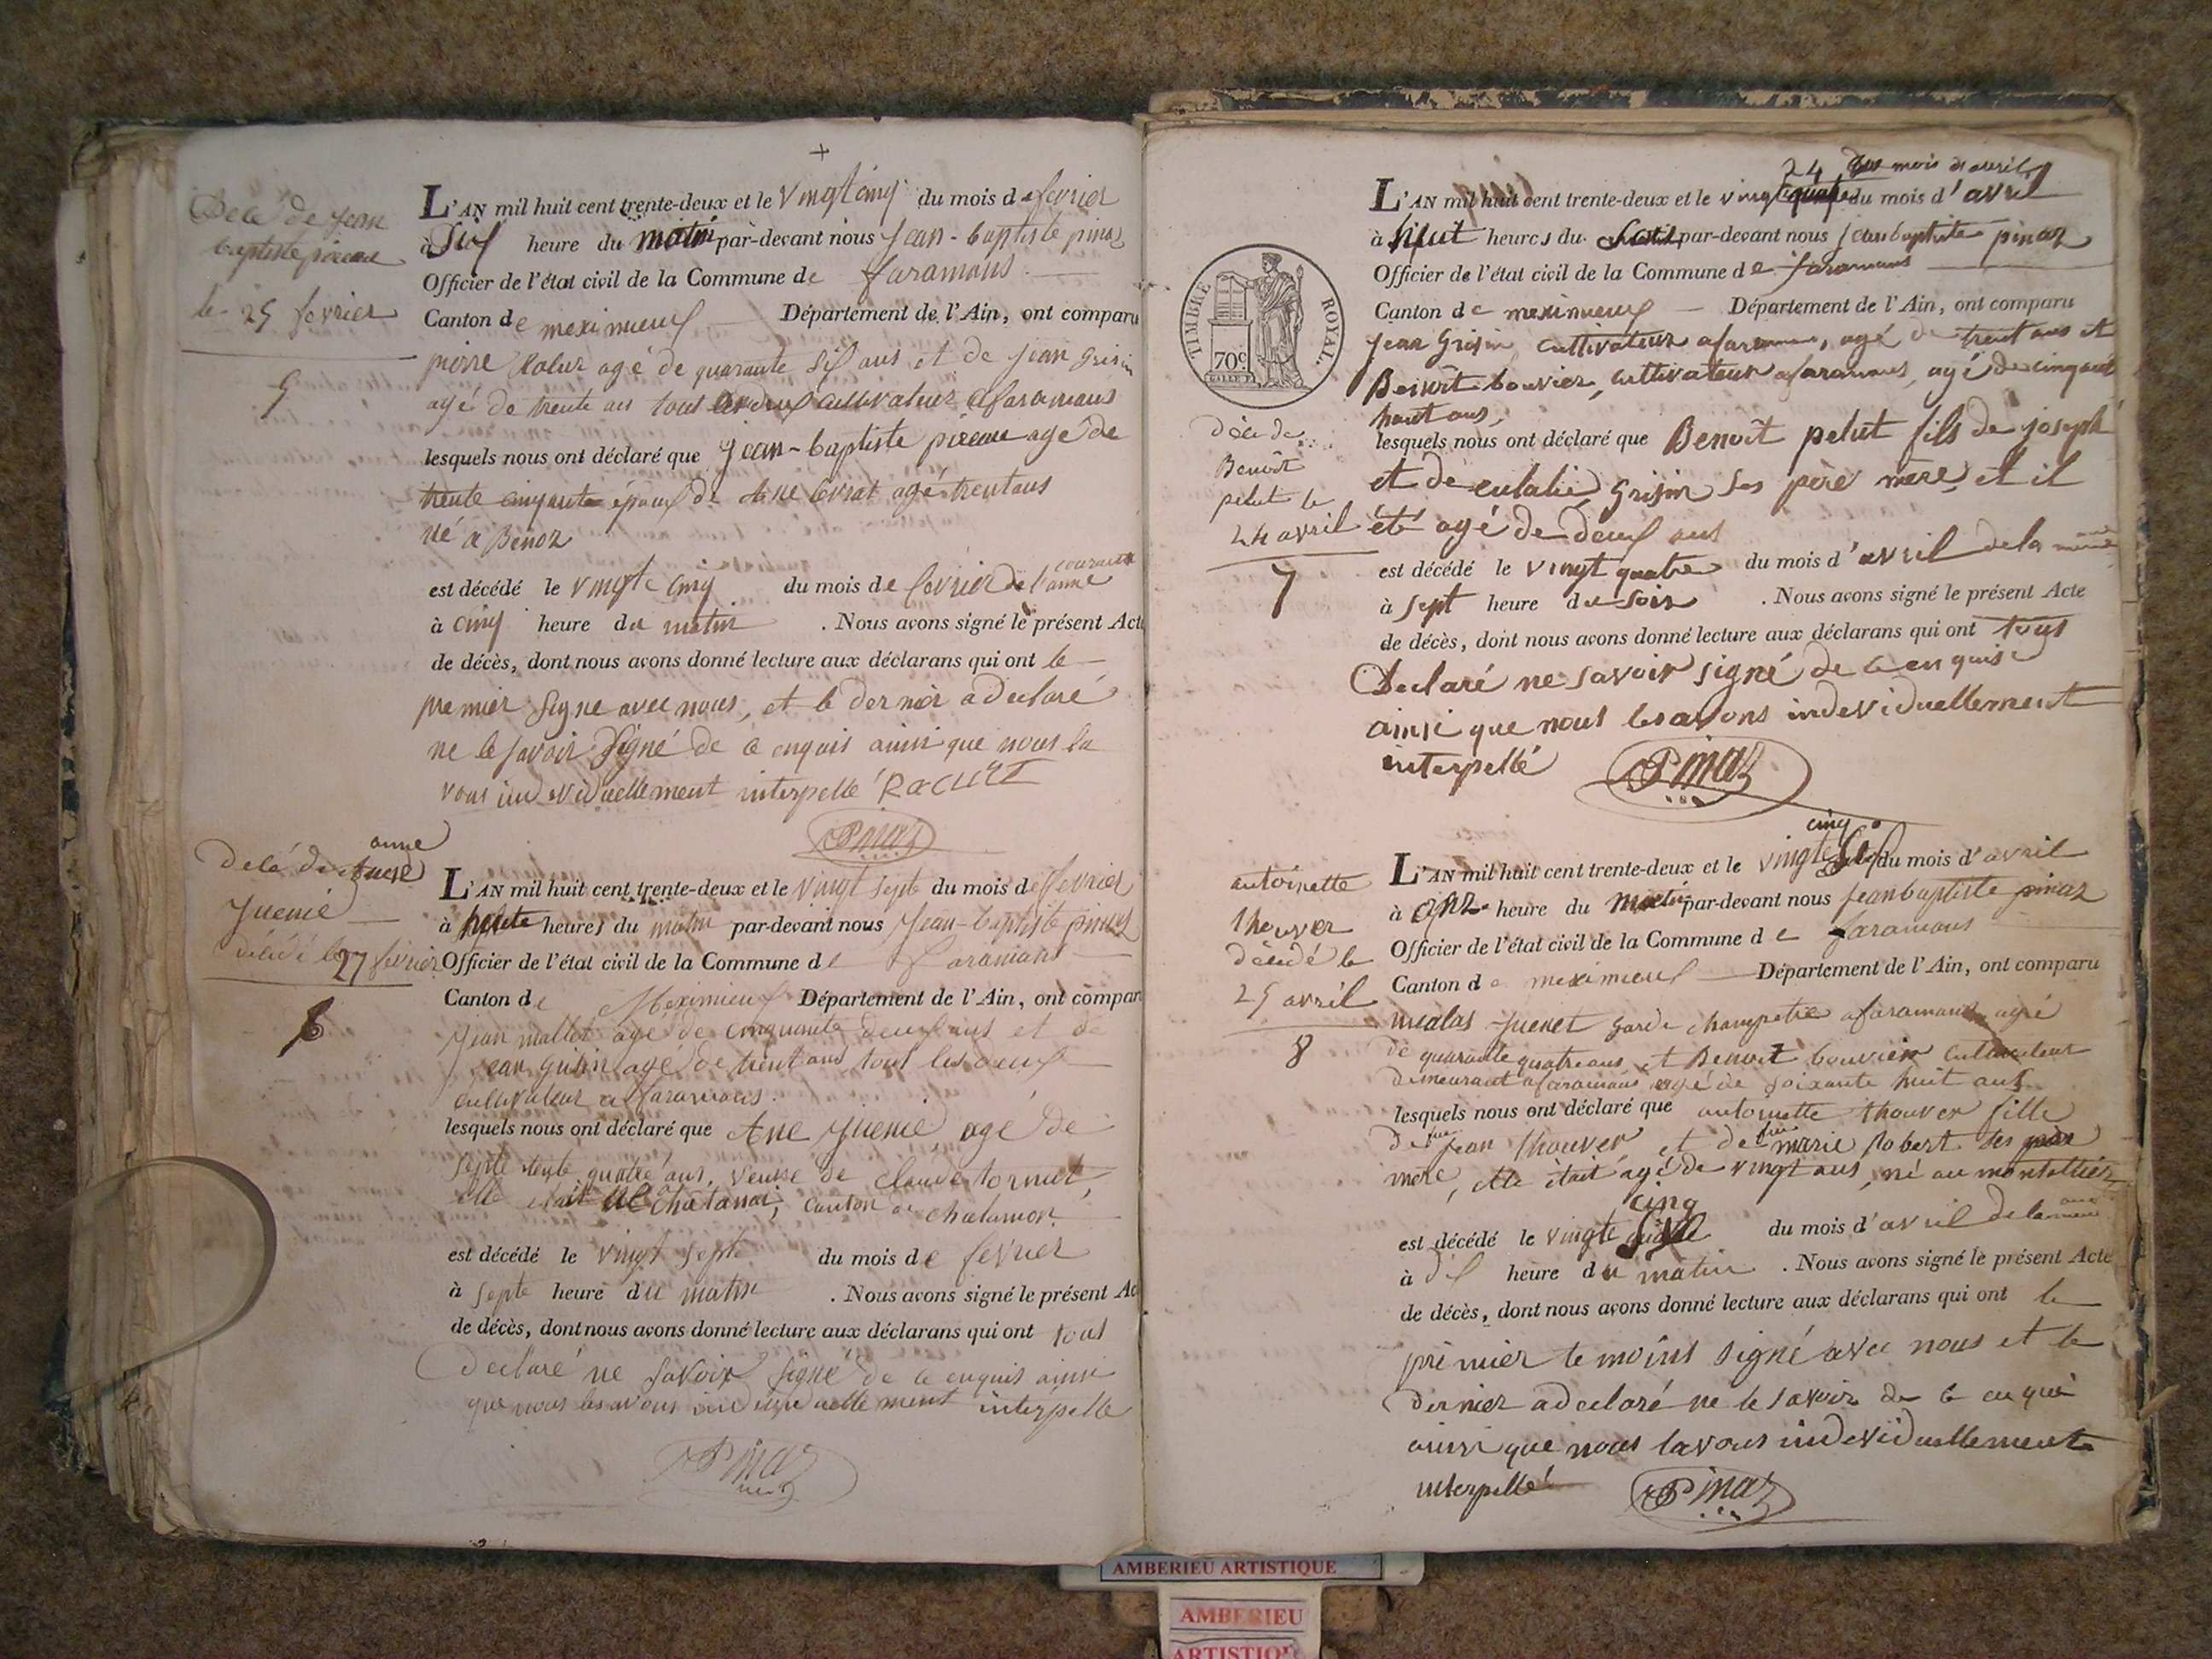 +
Décé de jean
baptiste
le 25 fevrier
5
L'AN mil huit cent trente-deux et le vingt cinq du mois de fevrier
à Six heure du matin par-devant nous Jean-baptiste pinaz
Officier de l'état civil de la Commune de faramans
Canton de meximieux Département de l'Ain, ont comparu
pierre agé de quarante six ans et de jean grisin
agé de trente ans tout les deux cultivateur a faramans
lesquels nous ont déclaré que jean-baptiste agé de
trente cinq ans époux de Ane agé trent ans
né a Benoz
est décédé le vingt cinq du mois de fevrier de l'anné courante
à cinq heure du matin . Nous avons signé le présent Acte
de décès, dont nous avons donné lecture aux déclarans qui ont le
premier signe avec nous, et le dernier a declaré
ne le savoir Signé de ce enquis ainsi que nous la
vons individuellement interpellé
Pinaz
anne
décé de
décédé le 27 fevrier
6
L'AN mil huit cent trente-deux et le vingt septe du mois de fevrier
à heures du matin par-devant nous Jean-baptiste pinaz
Officier de l'état civil de la Commune de faramans
Canton de Meximieux Département de l'Ain, ont compar
Jean mallet agé de cinquante deux ans et de
jean grisin agé de trent ans tout les deux
cultivateur a faramans.
lesquels nous ont déclaré que Ane agé de
quatre ans, veuve de claude tornier,
elle etait né a chatanai, canton de chalamon.
est décédé le vingt septe du mois de fevrier
à septe heure du matin . Nous avons signé le présent Ac
de décès, dont nous avons donné lecture aux déclarans qui ont tout
declaré ne savoir signé de ce enquis ainsi
que nous les avons individuellement interpellé
Pinaz
TIMBRE ROYAL.
70c.
décé de
Benoit
pelut le
24 avril
7
24 du mois d'avril
L'AN mil huit cent trente-deux et le vingt quatre du mois d'avril
à huit heures du Soir par-devant nous jean baptiste pinaz
Officier de l'état civil de la Commune de faramans
Canton de meximieux Département de l'Ain, ont comparu
jean Grisin cultivateur a faramans, agé de trent ans et
Benoît bouvier, cultivateur a faramans, agé de cinquante
huit ans,
lesquels nous ont déclaré que Benoît pelut fils de joseph
et de eulalie Grisin ses père mère, et il
été agé de deux ans
est décédé le vingt quatre du mois d'avril de la même
à sept heure du soir . Nous avons signé le présent Acte
de décès, dont nous avons donné lecture aux déclarans qui ont tous
Declaré ne savoir signé de ce enquis
ainsi que nous les avons individuellement
interpellé
Pinaz
antoinette
thouver
décédé le
25 avril
8
cinq
L'AN mil huit cent trente-deux et le vingte du mois d'avril
à onz heure du matin par-devant nous jean baptiste pinaz
Officier de l'état civil de la Commune de faramans
Canton de meximieux Département de l'Ain, ont comparu
nicolas garde champetre a faramans agé
de quarante quatre ans et Benoit bouvier cultivateur
demeurant a faramans agé de soixante huit ans
lesquels nous ont déclaré que antoinette thouver fille
de feu jean thouver et de feu marie robert ses père
mère, elle était agé de vingt ans, né au montellier
cinq
est décédé le vingte du mois d'avril de la même
à dix heure du matin . Nous avons signé le présent Acte
de décès, dont nous avons donné lecture aux déclarans qui ont le
premier temoins signé avec nous et le
dernier a declaré ne le savoir de ce enquis
ainsi que nous lavons individuellement
interpellé
Pinaz
AMBERIEU ARTISTIQUE
AMBERIEU
ARTISTIQUE